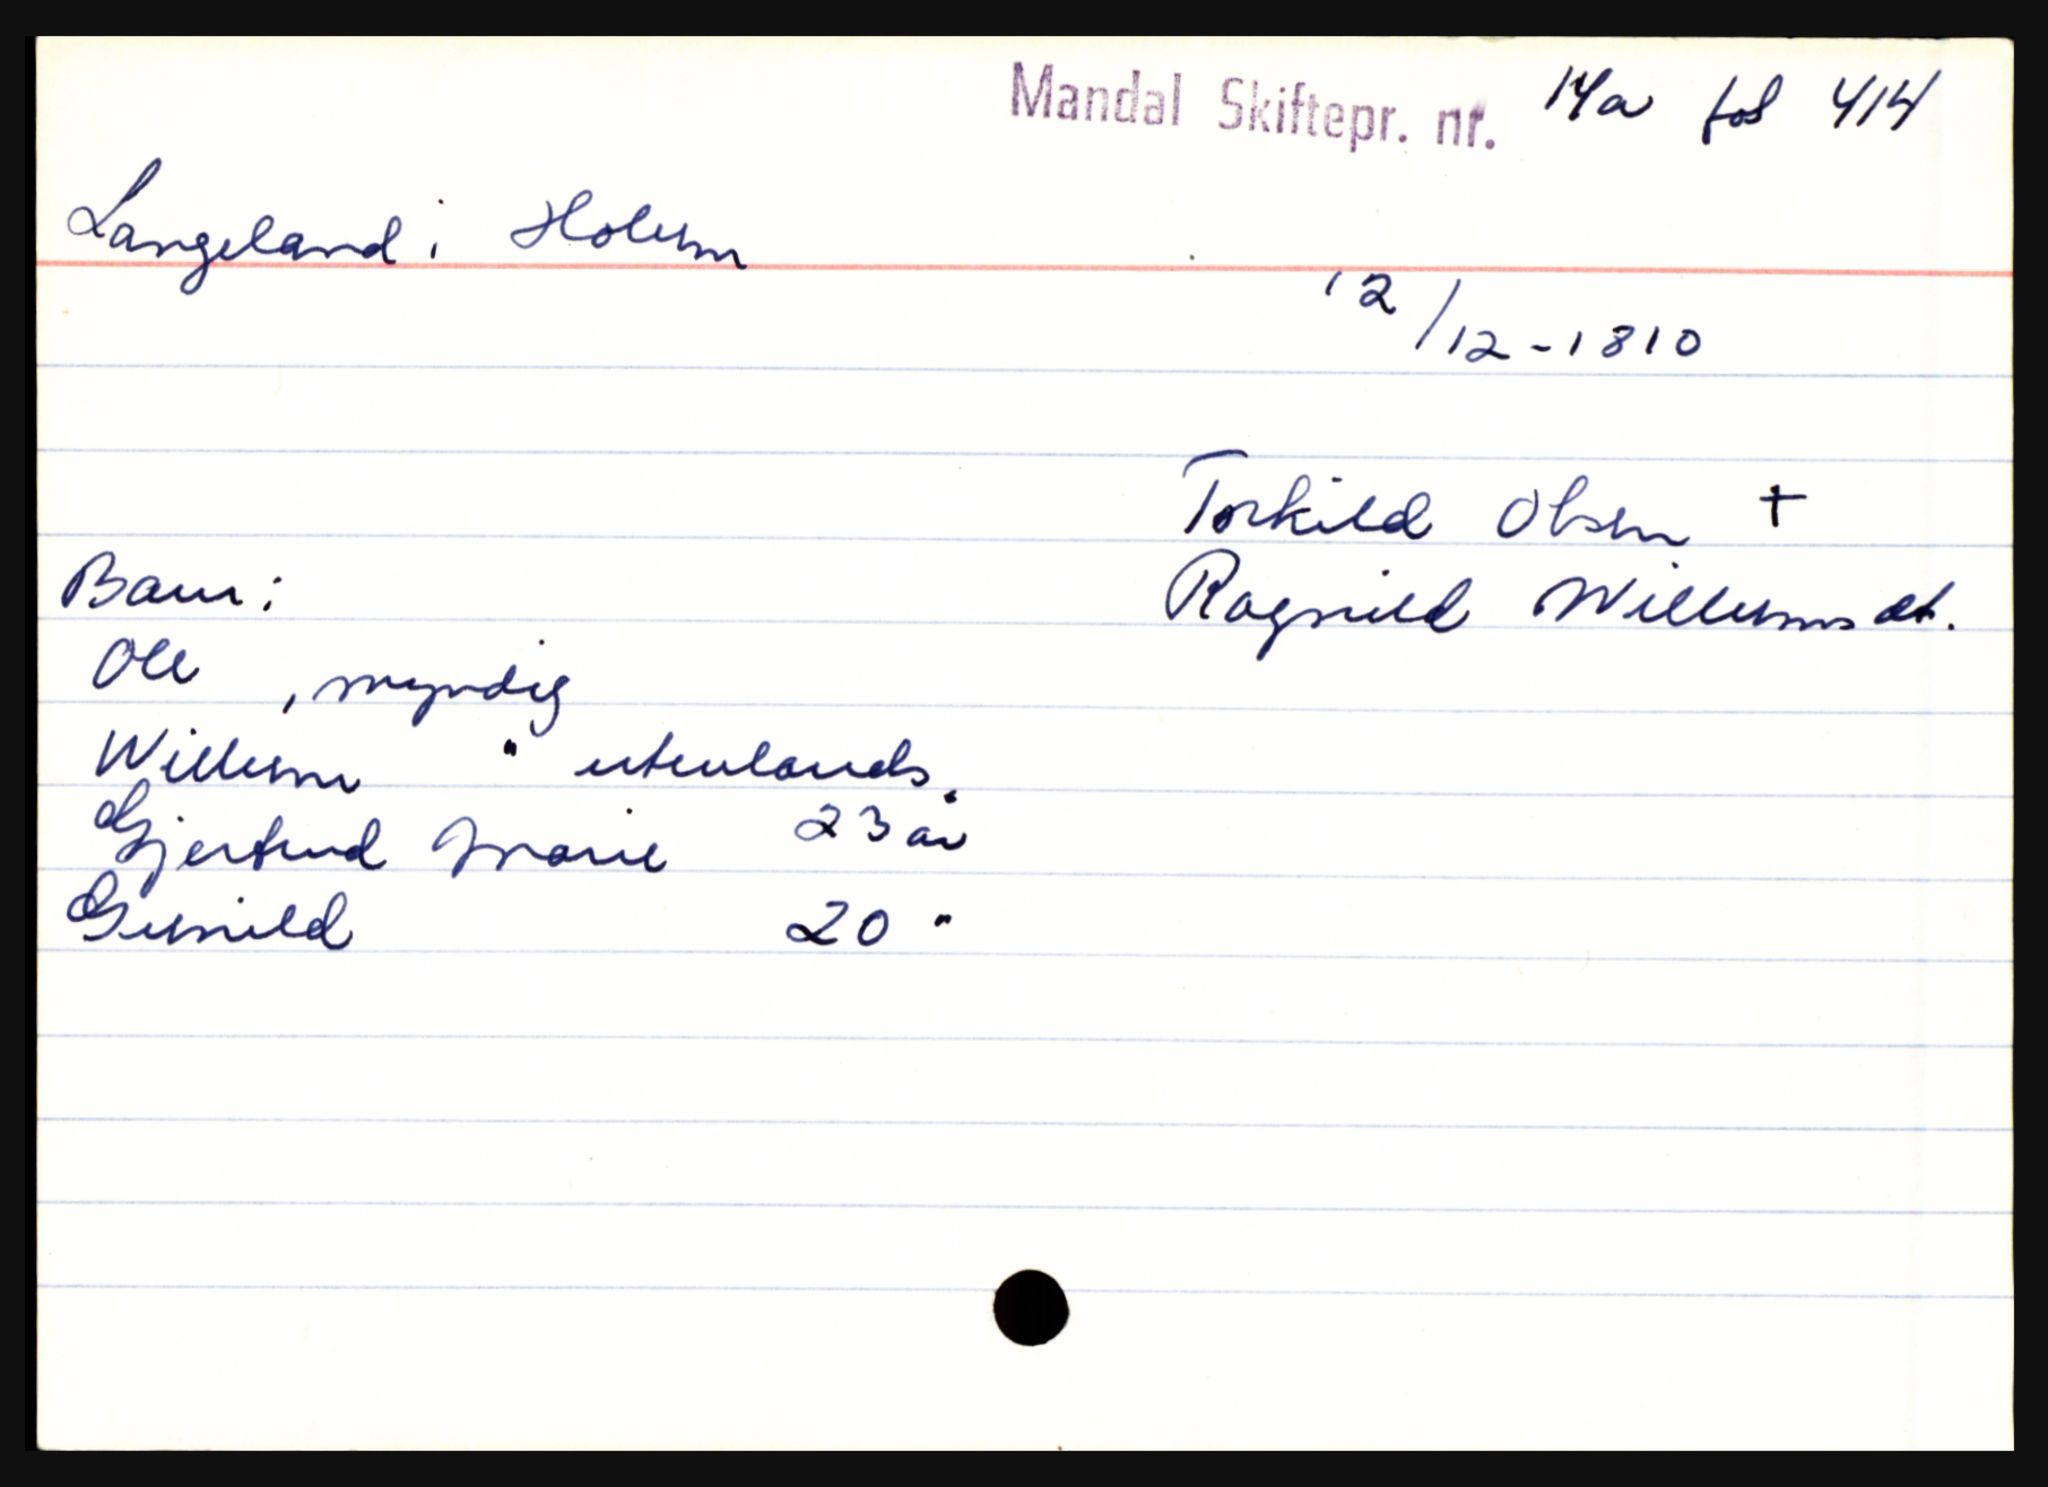 Mandal Skiftepr. nr. 14a fol 414
Langeland i Holum
12/12-1810
Torkild Olsen +
Ragnild Willumsdt.
Barn:
Ole , myndig
Willum " utenlands.
Gjertrud Marie 23 år
Gunild 20 "